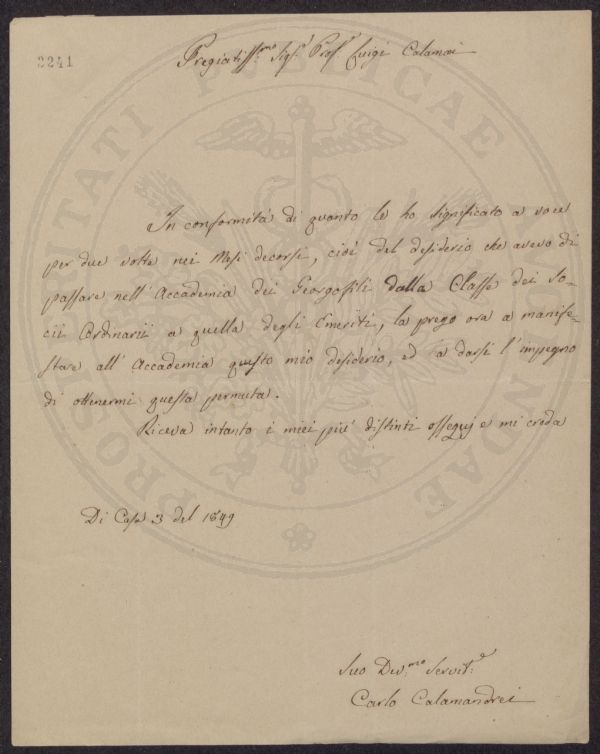 2241
Pregiatiss.mo Sig.r Prof.r Luigi Calamai
In conformità di quanto le ho significato a voce
per due volte nei Mesi decorsi, cioè del desiderio che avevo di
passare nell'Accademia dei Georgofili dalla Classe dei So-
cii Ordinarii a quella degli Emeriti, la prego ora a manife-
stare all'Accademia questo mio desiderio, ed a darsi l'impegno
di ottenermi questa permuta.
Riceva intanto i miei più distinti ossequj e mi creda
Di Casa 3 del 1849
Suo Dev.mo Servit.e
Carlo Calamandrei
PROSPERITATI PUBLICAE AUGENDAE